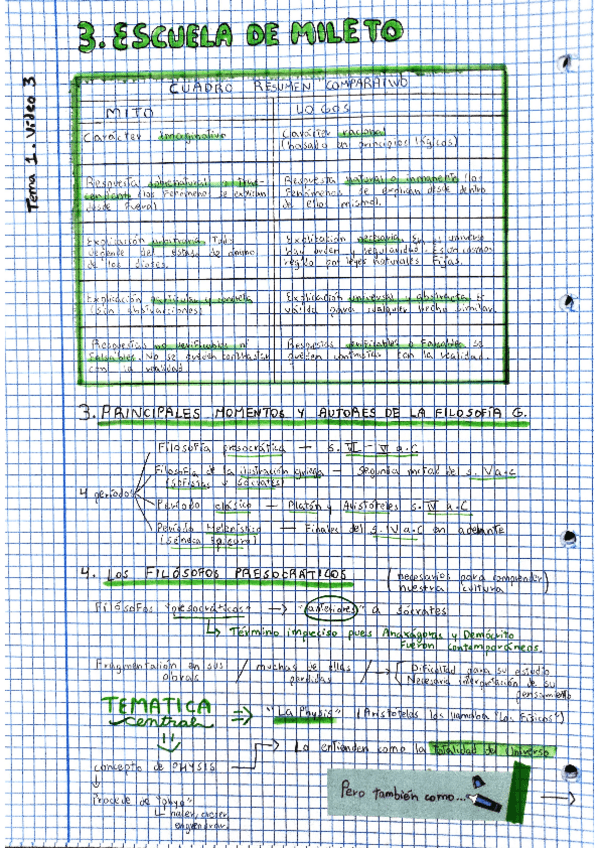 3. ESCUELA DE MILETO
Tema 1. Video 3
CUADRO RESUMEN COMPARATIVO
MITO
LOGOS
Carácter imaginativo
Carácter racional
(basado en principios lógicos)
Respuesta sobrenatural o tras-
cendente (los fenómenos se explican
desde fuera)
Respuesta natural o inmanente (los
fenómenos se explican desde dentro
de ellos mismos).
Explicación arbitraria. Todo
depende del estado de ánimo
de los dioses.
Explicación necesaria. En el universo
hay orden y regularidad. Es un cosmos
regido por leyes naturales fijas.
Explicación particular y concreta
(sin abstracciones)
Explicación universal y abstracta es
válida para cualquier hecho similar.
Respuestas no verificables ni
falsables. No se pueden contrastar
con la realidad
Respuestas verificables o falsables se
pueden contrastar con la realidad.
3. PRINCIPALES MOMENTOS Y AUTORES DE LA FILOSOFÍA G.
4 períodos
Filosofía presocrática — s. VI - V a.C
Filosofía de la ilustración griega — Segunda mitad de s. V a.c
(sofistas y Sócrates)
Período clásico — Platón y Aristóteles s. IV a.C
Período Helenístico — Finales del s. IV a.C en adelante
4. LOS FILÓSOFOS PRESOCRÁTICOS
(necesarios para comprender
nuestra cultura)
Filósofos "presocráticos" → "anteriores" a Sócrates
↳ Término impreciso pues Anaxágoras y Demócrito
fueron contemporáneos.
Fragmentación en sus
obras
/ muchas de ellas
perdidas
/ → Dificultad para su estudio
Necesaria interpretación de su
pensamiento
TEMATICA
central
⇒ "La Physis" (Aristóteles los llamaba "Los Físicos")
→ La entienden como la totalidad del Universo
concepto de PHYSIS
Procede de "phyo"
↳ nacer, crecer
engendrar.
Pero también como... →